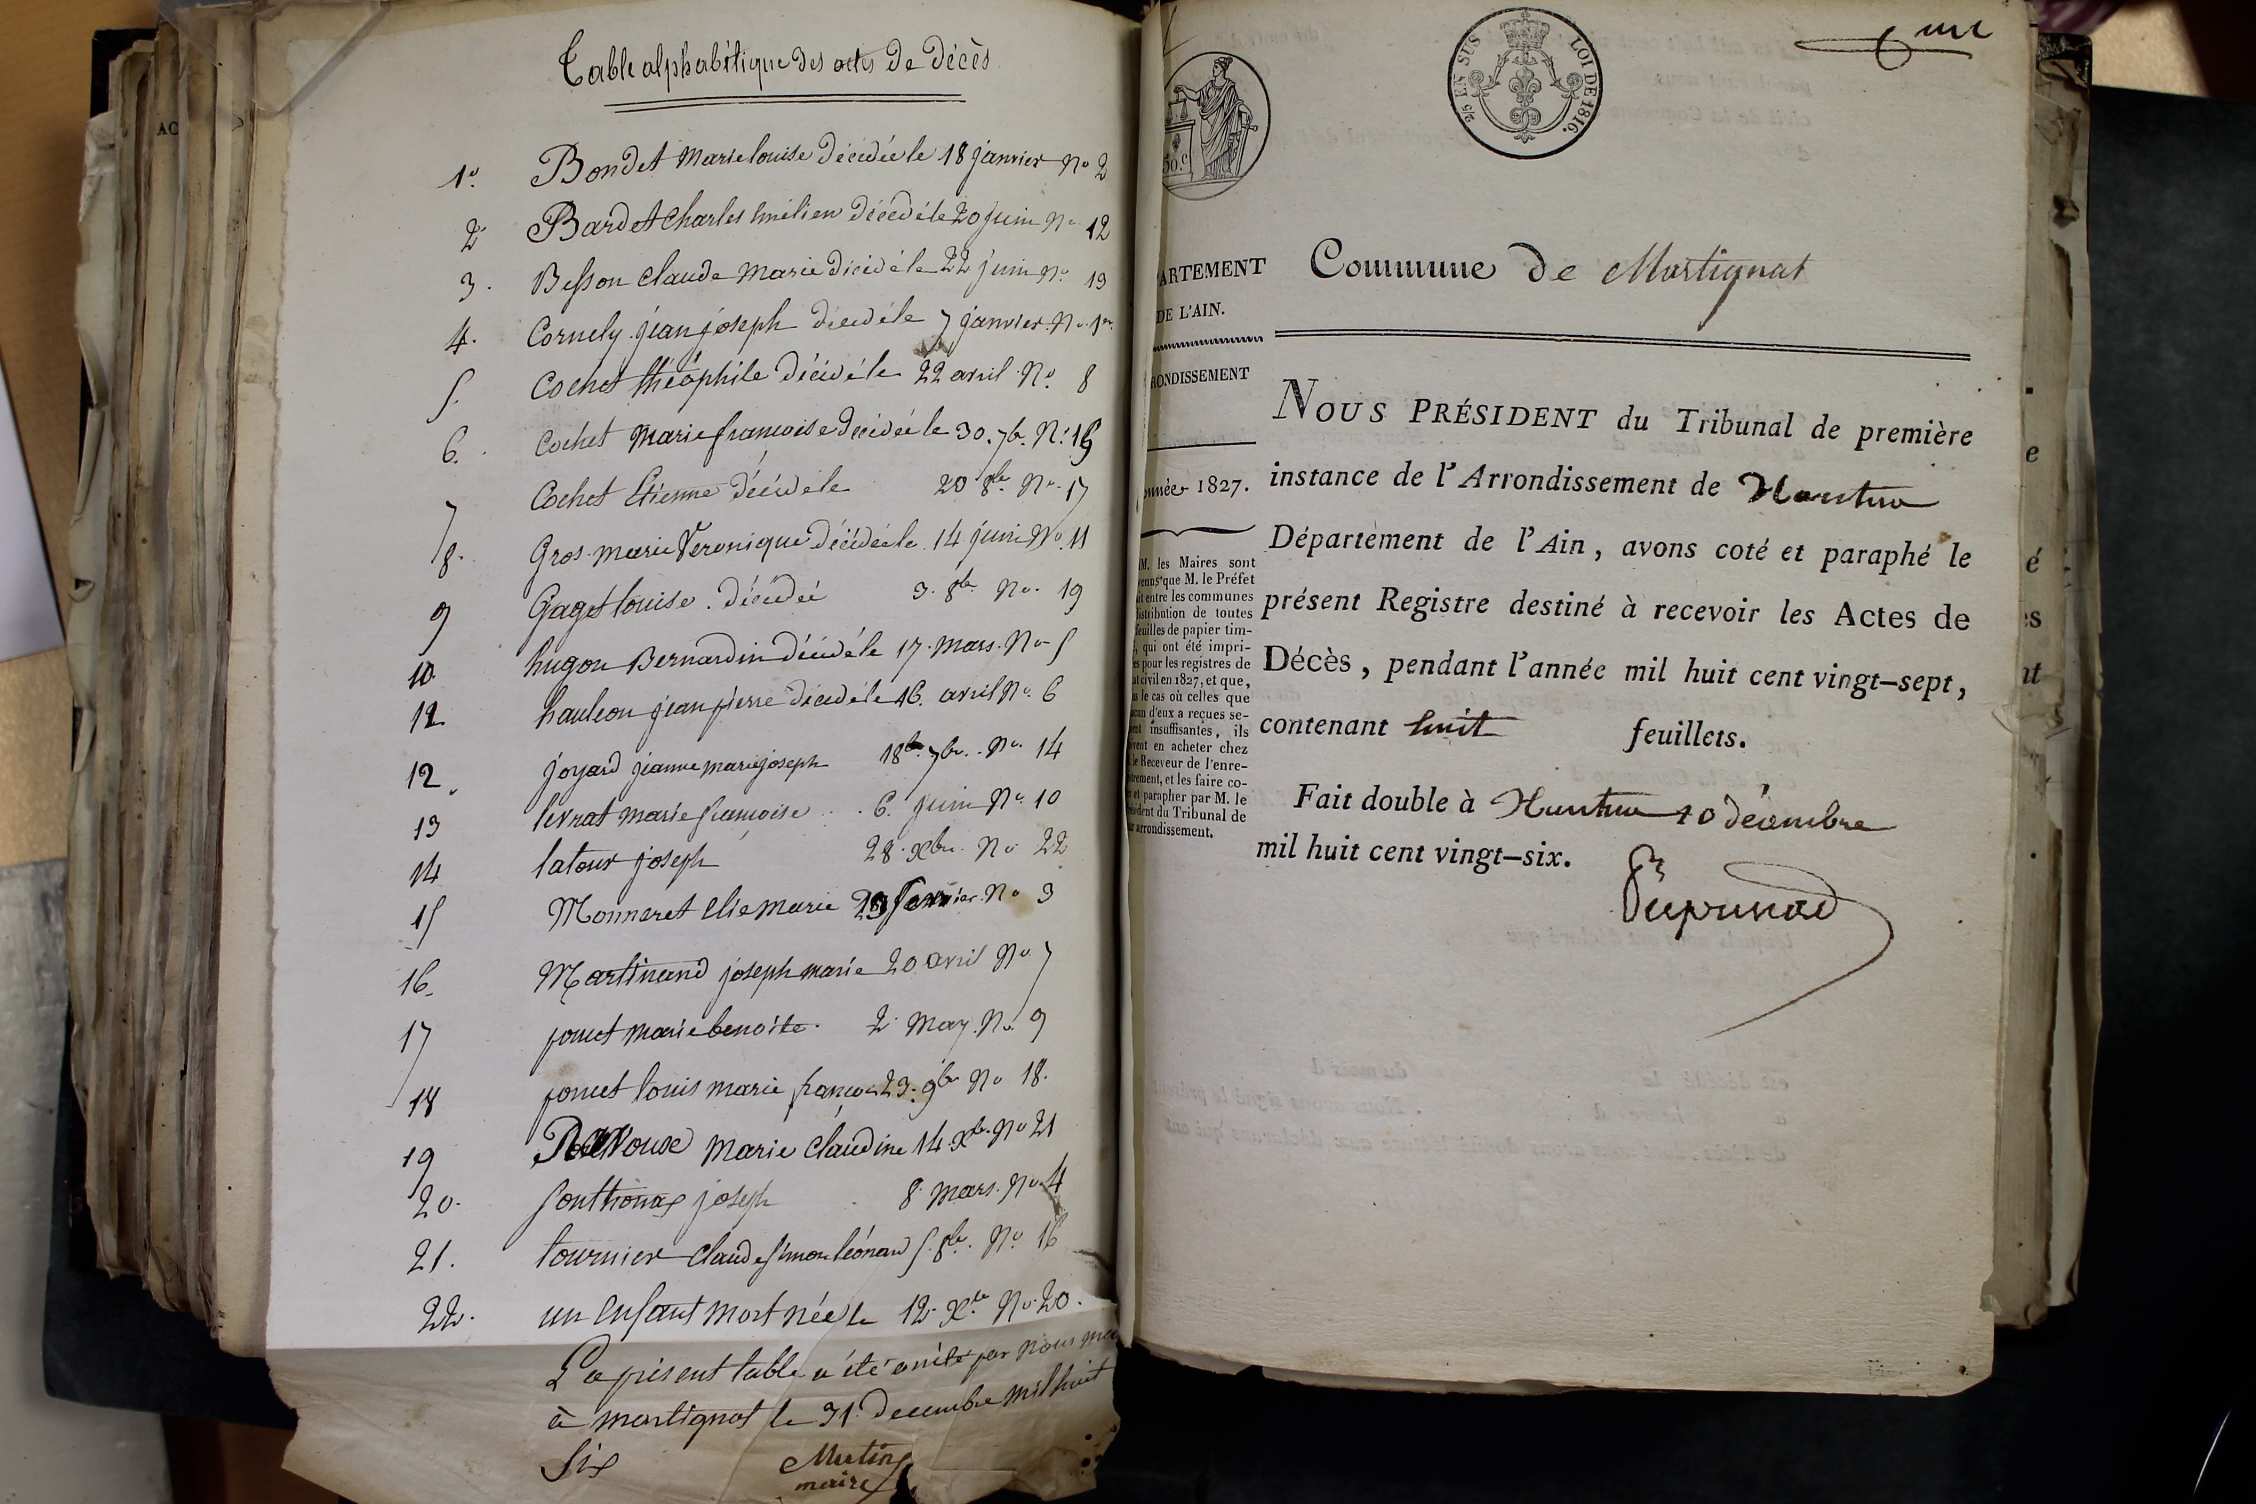 Table alphabétique des actes de décès
1º. Bondet Marie louise décédée le 18 janvier Nº 2
2. Bardet Charles Emélien décédé le 20 juin Nº 12
3. Besson Claude Marie décédé le 22 juin Nº 13
4. Cornely jean joseph décédé le 7 janvier Nº 1er
5. Cochet théophile décédé le 22 avril Nº 8
6. Cochet Marie françoise décédée le 30. 7b. Nº 15
7 Cochet Etienne décédé le 20 8bre Nº 17
8. Gros Marie Veronique décédée le 14 juin Nº 11
9 Gaget louise. décédée 3. 8bre Nº. 19
10 hugon Bernardin décédé le 17. Mars. Nº 5
12 hauleon jean pierre décédé le 16. avril Nº 6
12. joyard jeanne marie joseph 18 7bre. Nº. 14
13 levrat marie françoise. 6. juin Nº 10
14 latour joseph 28. Xbre. Nº 22
15 Monneret Elie Marie février Nº 3
16. Martinand joseph marie 20 avril Nº 7
17 poncet marie benoite. 2. May. Nº 9
18 poncet louis marie françois 23. 9bre Nº 18.
19 Marie Claudine 14 Xbre. Nº 21
20. Sonthonax joseph 8. Mars. Nº 4
21. tournier Claude Simon léonard 5. 8bre. Nº 16
22. un Enfant Mort née le 12. Xbre Nº 20.
La présent table a été arrêté par Nous
à martignat le 31. Decembre Mil huit
Six
Mutin
maire
une
2/5 EN SUS
LOI DE 1816.
50.c
ARTEMENT
DE L'AIN.
RONDISSEMENT
année 1827.
M. les Maires sont
venus que M. le Préfet
it entre les communes
istribution de toutes
feuilles de papier tim-
, qui ont été impri-
es pour les registres de
at civil en 1827, et que,
s le cas où celles que
cun d'eux a reçues se-
ent insuffisantes, ils
vent en acheter chez
le Receveur de l'enre-
trement, et les faire co-
r et parapher par M. le
sident du Tribunal de
ur arrondissement.
Commune de Martignat
NOUS PRÉSIDENT du Tribunal de première
instance de l'Arrondissement de Nantua
Département de l'Ain, avons coté et paraphé le
présent Registre destiné à recevoir les Actes de
Décès, pendant l'année mil huit cent vingt-sept,
contenant huit feuillets.
Fait double à Nantua 10 décembre
mil huit cent vingt-six.